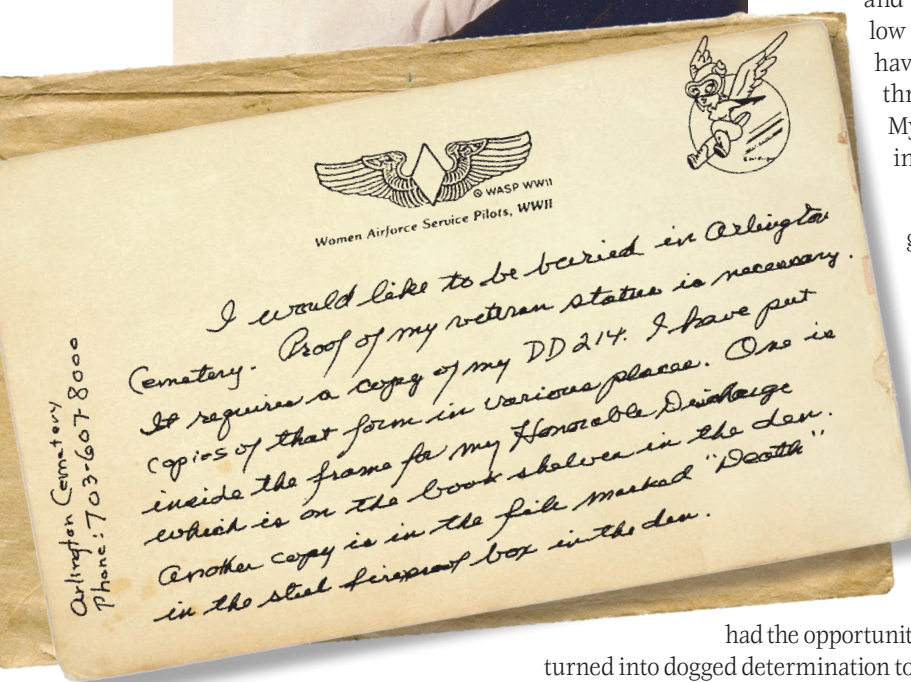 and
low
hav
thr
My
in
g
© WASP WWII
Women Airforce Service Pilots, WWII
I would like to be buried in Arlington
Cemetery. Proof of my vetran status is necessary.
It requires a copy of my DD 214. I have put
copies of that form in various places. One is
inside the frame for my Honorable Discharge
which is on the book shelves in the den.
Another copy is in the file marked "Death"
in the steel fireproof box in the den.
Arlington Cemetery
Phone: 703-607-8000
had the opportunit
turned into dogged determination to